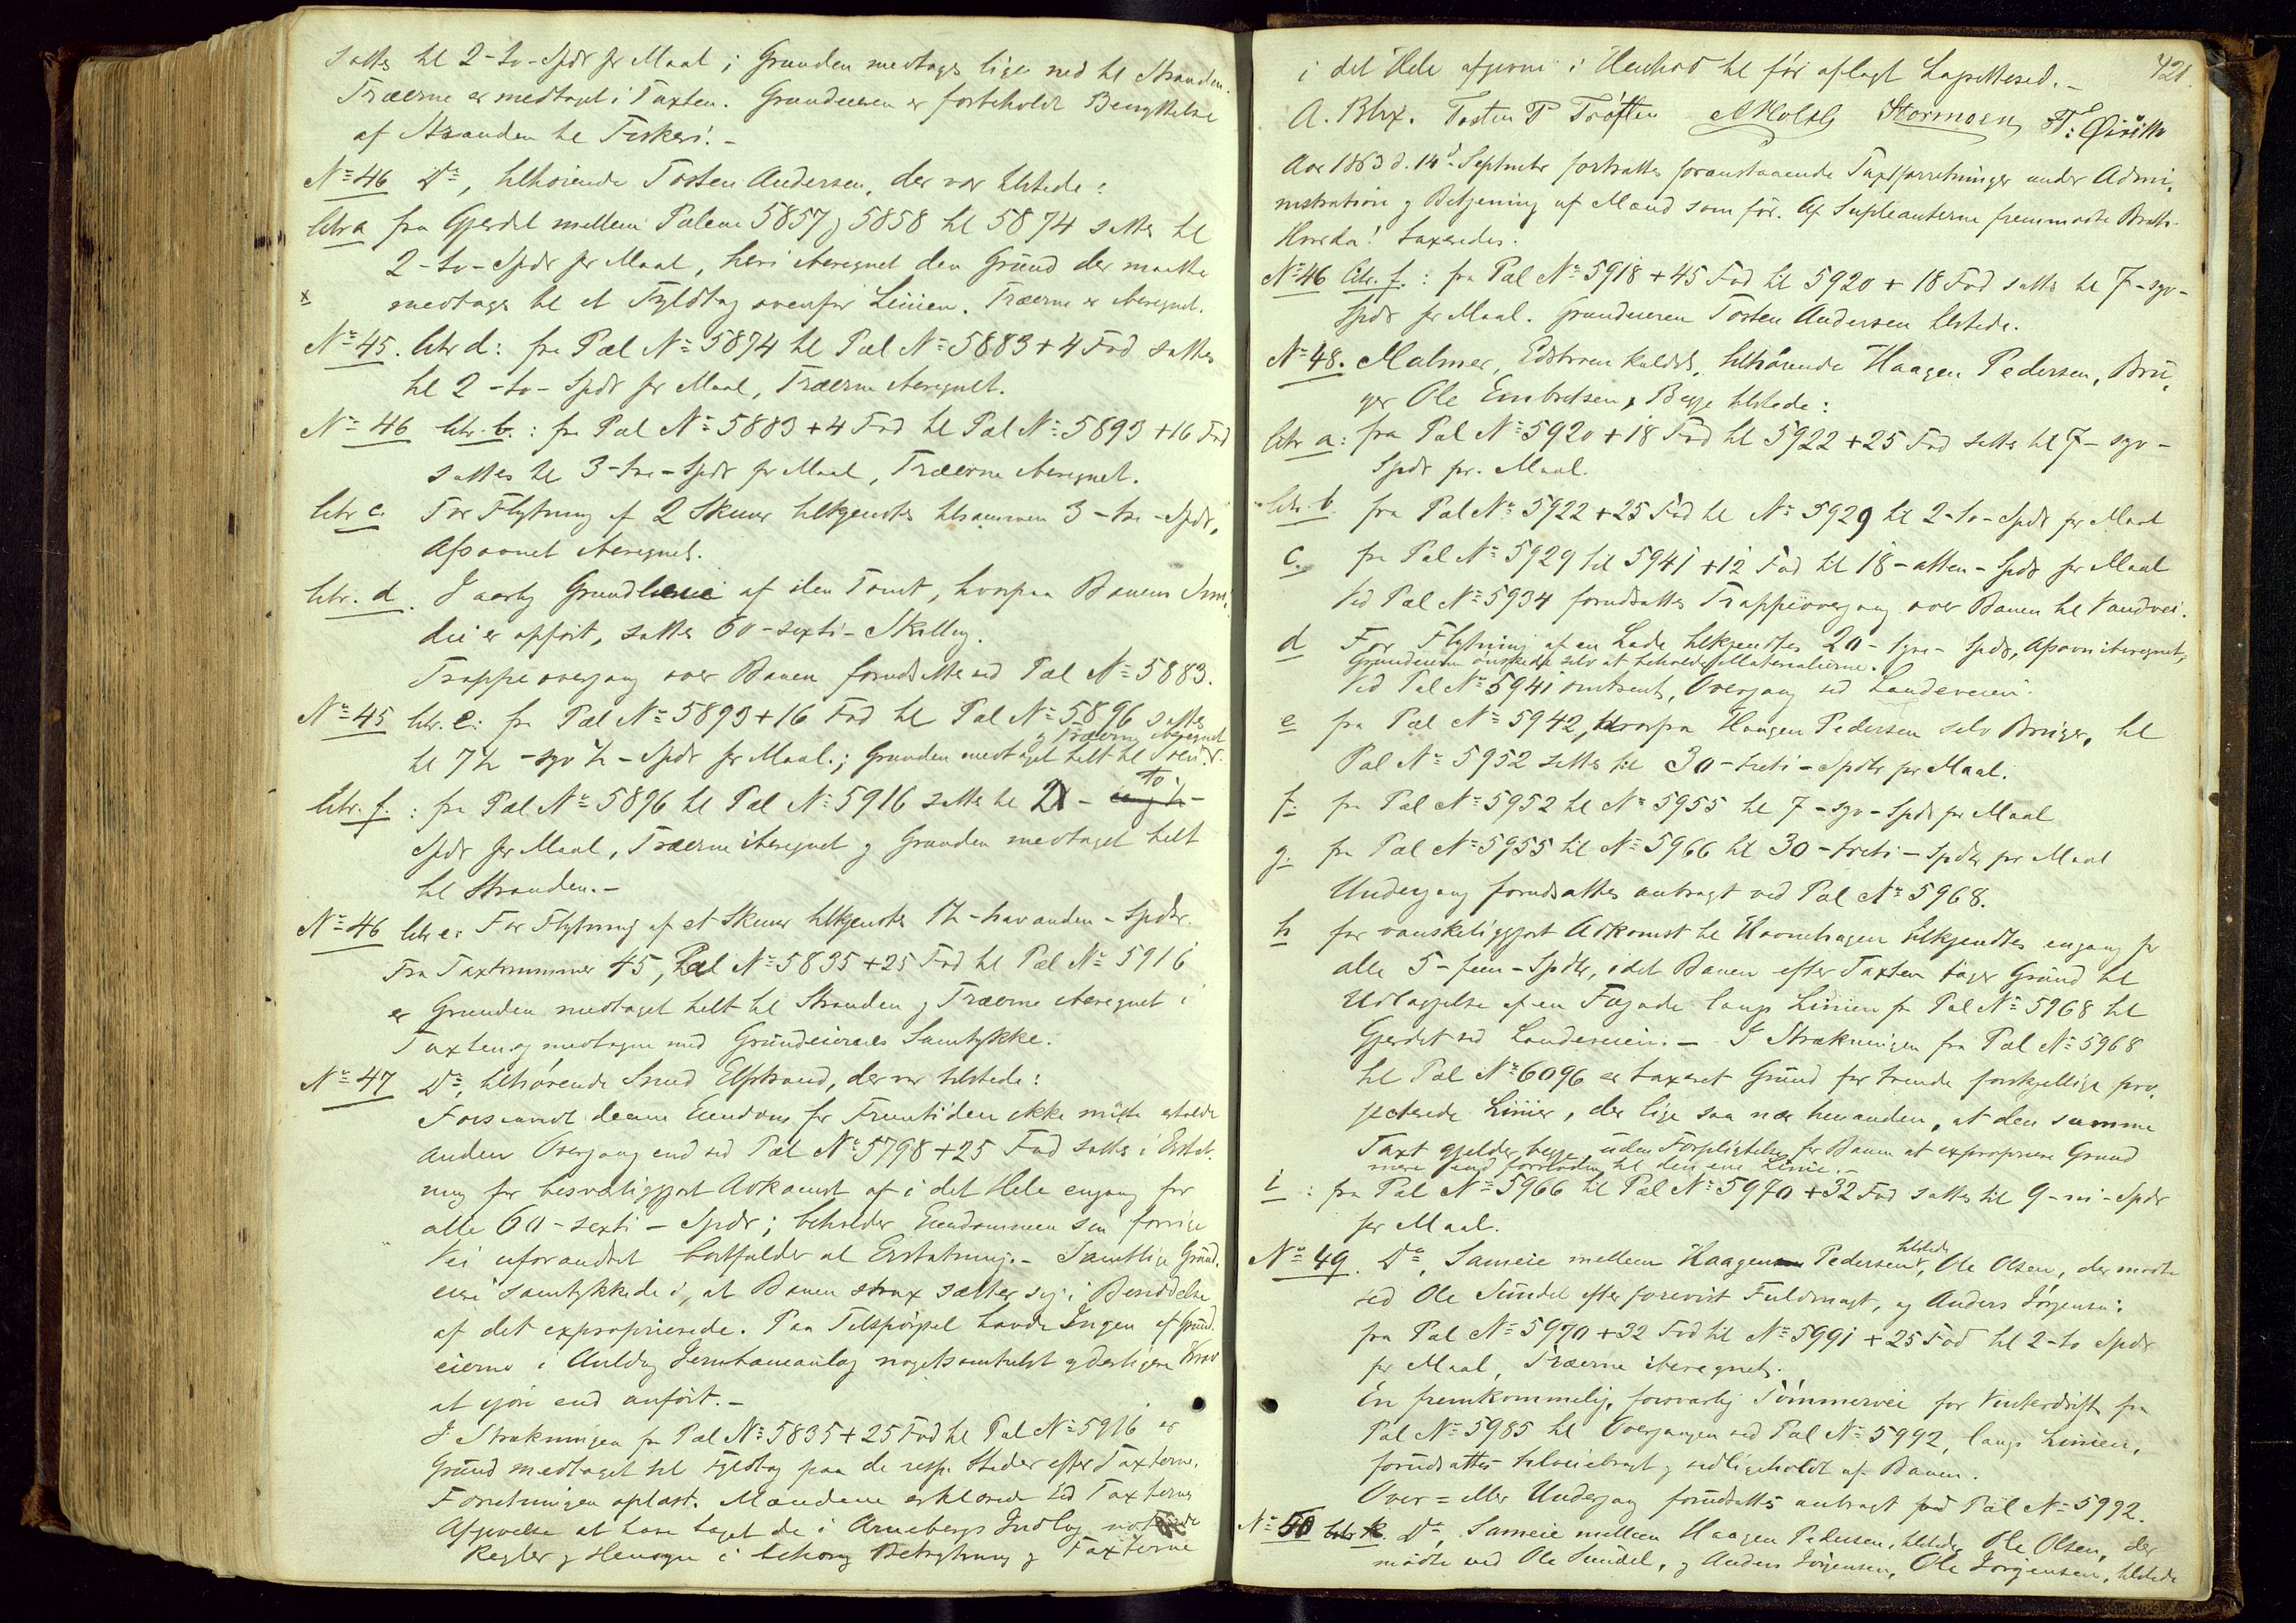 sattes til 2-to-Spdr pr Maal; Grunden medtages lige ned til Stranden.
Træerne er medtaget i Taxten. Grundeieren er forbeholdt Benyttelse
af Stranden til Fiskeri.-
No 46 Do, tilhörende Tosten Andersen, der var tilstede:
Litr a fra Gjerdet mellem Pælene 5857 og 5858 til 5874 sattes til
2-to-Spdr pr Maal, heri iberegnet den Grund der maatte
x medtages til et Fyldtag ovenfor Linien. Træerne er iberegnet.
No 45. Litr d: fra Pæl No 5874 til Pæl No 5883+4 Fod sattes
til 2-to-Spdr pr Maal, Træerne iberegnet.
No 46 Litr. b.: fra Pæl No 5883+4 Fod til Pæl No 5893+16 Fod
sattes til 3-tre-Spdr pr Maal, Træerne iberegnet.
Litr c. For Flytning af 2 Skuur tilkjendtes tilsammen 3-tre-Spdr,
Afsavnet iberegnet.
Litr. d. I aarlig Grundleie af den Tomt, hvorpaa Banens Smi-
die er opfört, sattes 60-sexti-Skilling.
Trappeovergang over Banen forudsattes ved Pæl No 5883.
No 45 Litr. e: fra Pæl No 5893+16 Fod til Pæl No 5896 sattes
og Træerne iberegnet
til 7½-syv ½-Spdr pr Maal.; Grunden medtaget helt til
Litr. f.: fra Pæl No 5896 til Pæl No 5916 sattes til 2 - to -
Spdr pr Maal, Træerne iberegnet og Grunden medtaget helt
til Stranden.-
No 46 Litr e: For Flytning af et Skuur tilkjendtes 1½-halvanden-Spdr.
Fra Taxtnummer 45, Pæl No 5835+25 Fod til Pæl No 5916
er Grunden medtaget helt til Stranden og Træerne iberegnet i
Taxten og medtagne med Grundeiernes Samtykke.
No 47 Do, tilhörende Elfstrand, der var tilstede:
Forsaavidt denne Eiendom for Fremtiden ikke maatte erholde
anden Overgang end ved Pæl No 5798+25 Fod sattes i Erstat-
ning for besværliggjort Adkomst af i det Hele engang for
alle 60-sexti-Spdr; beholder Eiendommen sin forrige
Vei uforandret bortfalder al Erstatning.- Samtlige Grund-
eiere samtykkede i, at Banen strax sætter sig i Besiddelse
af det exproprierede. Paa Tilspörgsel havde Ingen af Grund-
eierne i Anledning Jernbaneanlæg nogetsomhelst yderligere Krav
at gjöre end anfört.-
I Strækningen fra Pæl No 5835+25 Fod til Pæl No 5916 er
Grund medtaget til Fyldtag paa de resp. Steder efter Taxterne.
Forretningen oplæst. Mændene erklærede ved Taxternes
Afgivelse at have taget de i Arnebergs Indlæg
Regler og Hensyn i behörig Betragtning og Taxterne
421.
i det Hele afgivne i Henhold til för aflagt Lagrettesed.-
A. Blix. Tosten P Tröften Stormoen
Aar 1863 d. 14d September fortsattes foranstaaende Taxtforretninger under Admi-
nistration og Betjening af Mænd som för. Af Supleanterne fremmödte
taxeredes:
No 46 Litr. f.: fra Pæl No 5918+45 Fod til 5920+18 Fod sattes til 7-syv-
Spdr pr Maal. Grundeieren Tosten Andersen tilstede.
No 48. Malmer, kaldet, tilhörende Haagen Pedersen, Bru-
ger Ole Embretsen, Begge tilstede:
Litr a: fra Pæl No 5920+18 Fod til 5922+25 Fod sattes til 7-syv-
Spdr pr. Maal.
Litr. b. fra Pæl No 5922+25 Fod til No 5929 til 2-to-Spdr pr Maal
c. fra Pæl No 5929 til 5941+12 Fod til 18-atten-Spdr pr Maal
Ved Pæl No 5934 forudsattes Trappeovergang over Banen til Vandvei.
d For Flytning af en Lade tilkjendtes 20-tyve-Spdr, Afsavn iberegnet,
Grundeieren önskede selv at beholde Materialierne.
Ved Pæl No 5941 omtrent, Overgang ved Landeveien.
e fra Pæl No 5942, hvorfra Haagen Pedersen selv Bruger, til
Pæl No 5952 sattes til 30-treti-Spdr pr Maal.
f: fra Pæl No 5952 til No 5955 til 7-syv-Spdr pr Maal
g. fra Pæl No 5955 til No 5966 til 30-treti-Spdr pr Maal
Undergang forudsattes anbragt ved Pæl No 5968.
h for vanskeliggjort Adkomst til Havnehagen tilkjendtes engang for
alle 5-fem-Spdr, idet Banen efter Taxten tager Grund til
Udlæggelse af en Fægade langs Linien fra Pæl No 5968 til
Gjerdet ved Landeveien.- I Strækningen fra Pæl No 5968
til Pæl No 6096 er taxeret Grund for tvende forskjellige pro-
jecterede Linier, der lige saa nær hinanden, at den samme
Taxt gjelder begge, uden Forpligtelse for Banen at expropriere Grund
mere end fornöden til den ene Linie.-
i: fra Pæl No 5966 til Pæl No 5970+32 Fod sattes til 9-ni-Spdr
pr Maal.
No 49. Do, Sameie mellem Haagen Pedersen, tilstede, Ole Olsen, der mödte
ved Ole Sundet efter forevist Fuldmagt, og Anders Jörgensen:
fra Pæl No 5970+32 Fod til No 5991+25 Fod til 2-to Spdr
pr Maal, Træerne iberegnet.
En fremkommelig, forsvarlig Tömmervei for Vinterdrift fra
Pæl No 5985 til Overgangen ved Pæl No 5992, langs Linien,
forudsattes tilveiebragt og vedligeholdt af Banen.
Over= eller Undergang forudsattes anbragt ved Pæl No 5992.
No 50 Do, Sameie mellem Haagen Pedersen, tilstede, Ole Olsen, der
mödte ved Ole Sundet, og Anders Jörgensen, Ole Jörgensen, tilstede